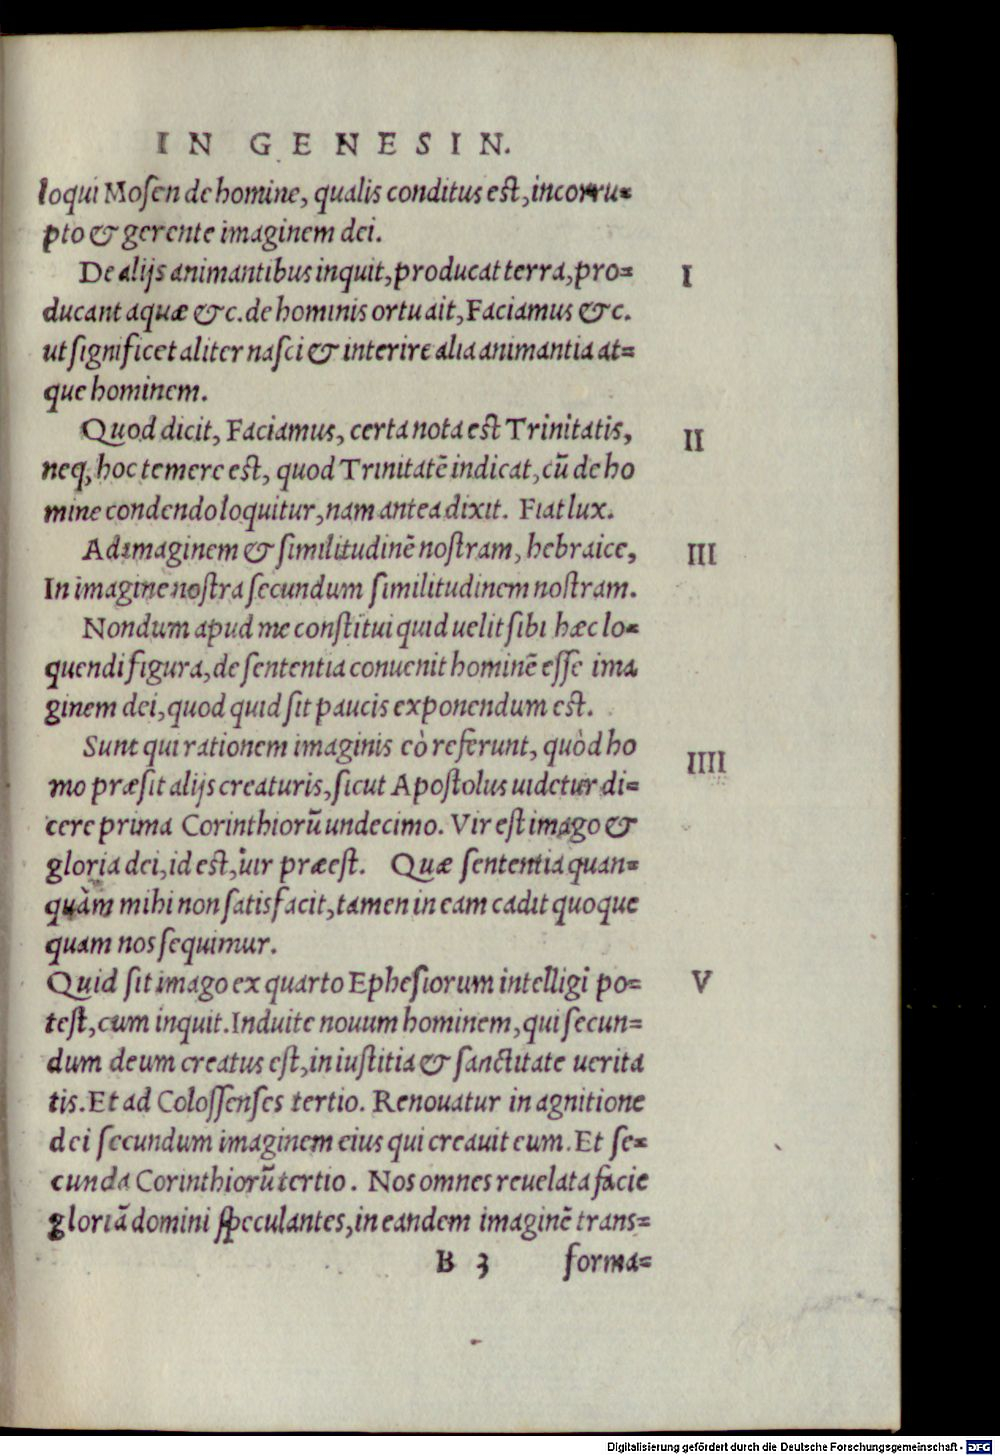 IN GENESIN.
loqui Mosen de homine, qualis conditus est, incorru=
pto & gerente imaginem dei.
De alijs animantibus inquit, producat terra, pro= I
ducant aquæ &c. de hominis ortu ait, Faciamus &c.
ut significet aliter nasci & interire alia animantia at=
que hominem.
Quod dicit, Faciamus, certa nota est Trinitatis, II
neq; hoc temere est, quod Trinitatē indicat, cū de ho
mine condendo loquitur, nam antea dixit. Fiat lux.
Ad imaginem & similitudinē nostram, hebraice, III
In imagine nostra secundum similitudinem nostram.
Nondum apud me constitui quid uelit sibi hæc lo=
quendi figura, de sententia conuenit hominē esse ima
ginem dei, quod quid sit paucis exponendum est.
Sunt qui rationem imaginis eò referunt, quòd ho IIII
mo præsit alijs creaturis, sicut Apostolus uidetur di=
cere prima Corinthiorū undecimo. Vir est imago &
gloria dei, id est, uir præest. Quæ sententia quan=
quàm mihi non satisfacit, tamen in eam cadit quoque
quam nos sequimur.
Quid sit imago ex quarto Ephesiorum intelligi po= V
test, cum inquit. Induite nouum hominem, qui secun=
dum deum creatus est, in iustitia & sanctitate uerita
tis. Et ad Colossenses tertio. Renouatur in agnitione
dei secundum imaginem eius qui creauit eum. Et se=
cunda Corinthiorū tertio. Nos omnes reuelata facie
gloriā domini speculantes, in eandem imaginē trans=
B 3 forma=
Digitalisierung gefördert durch die Deutsche Forschungsgemeinschaft - DFG